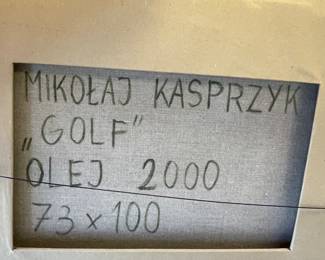 MIKOŁAJ KASPRZYK
„GOLF"
OLEJ 2000
73 x 100